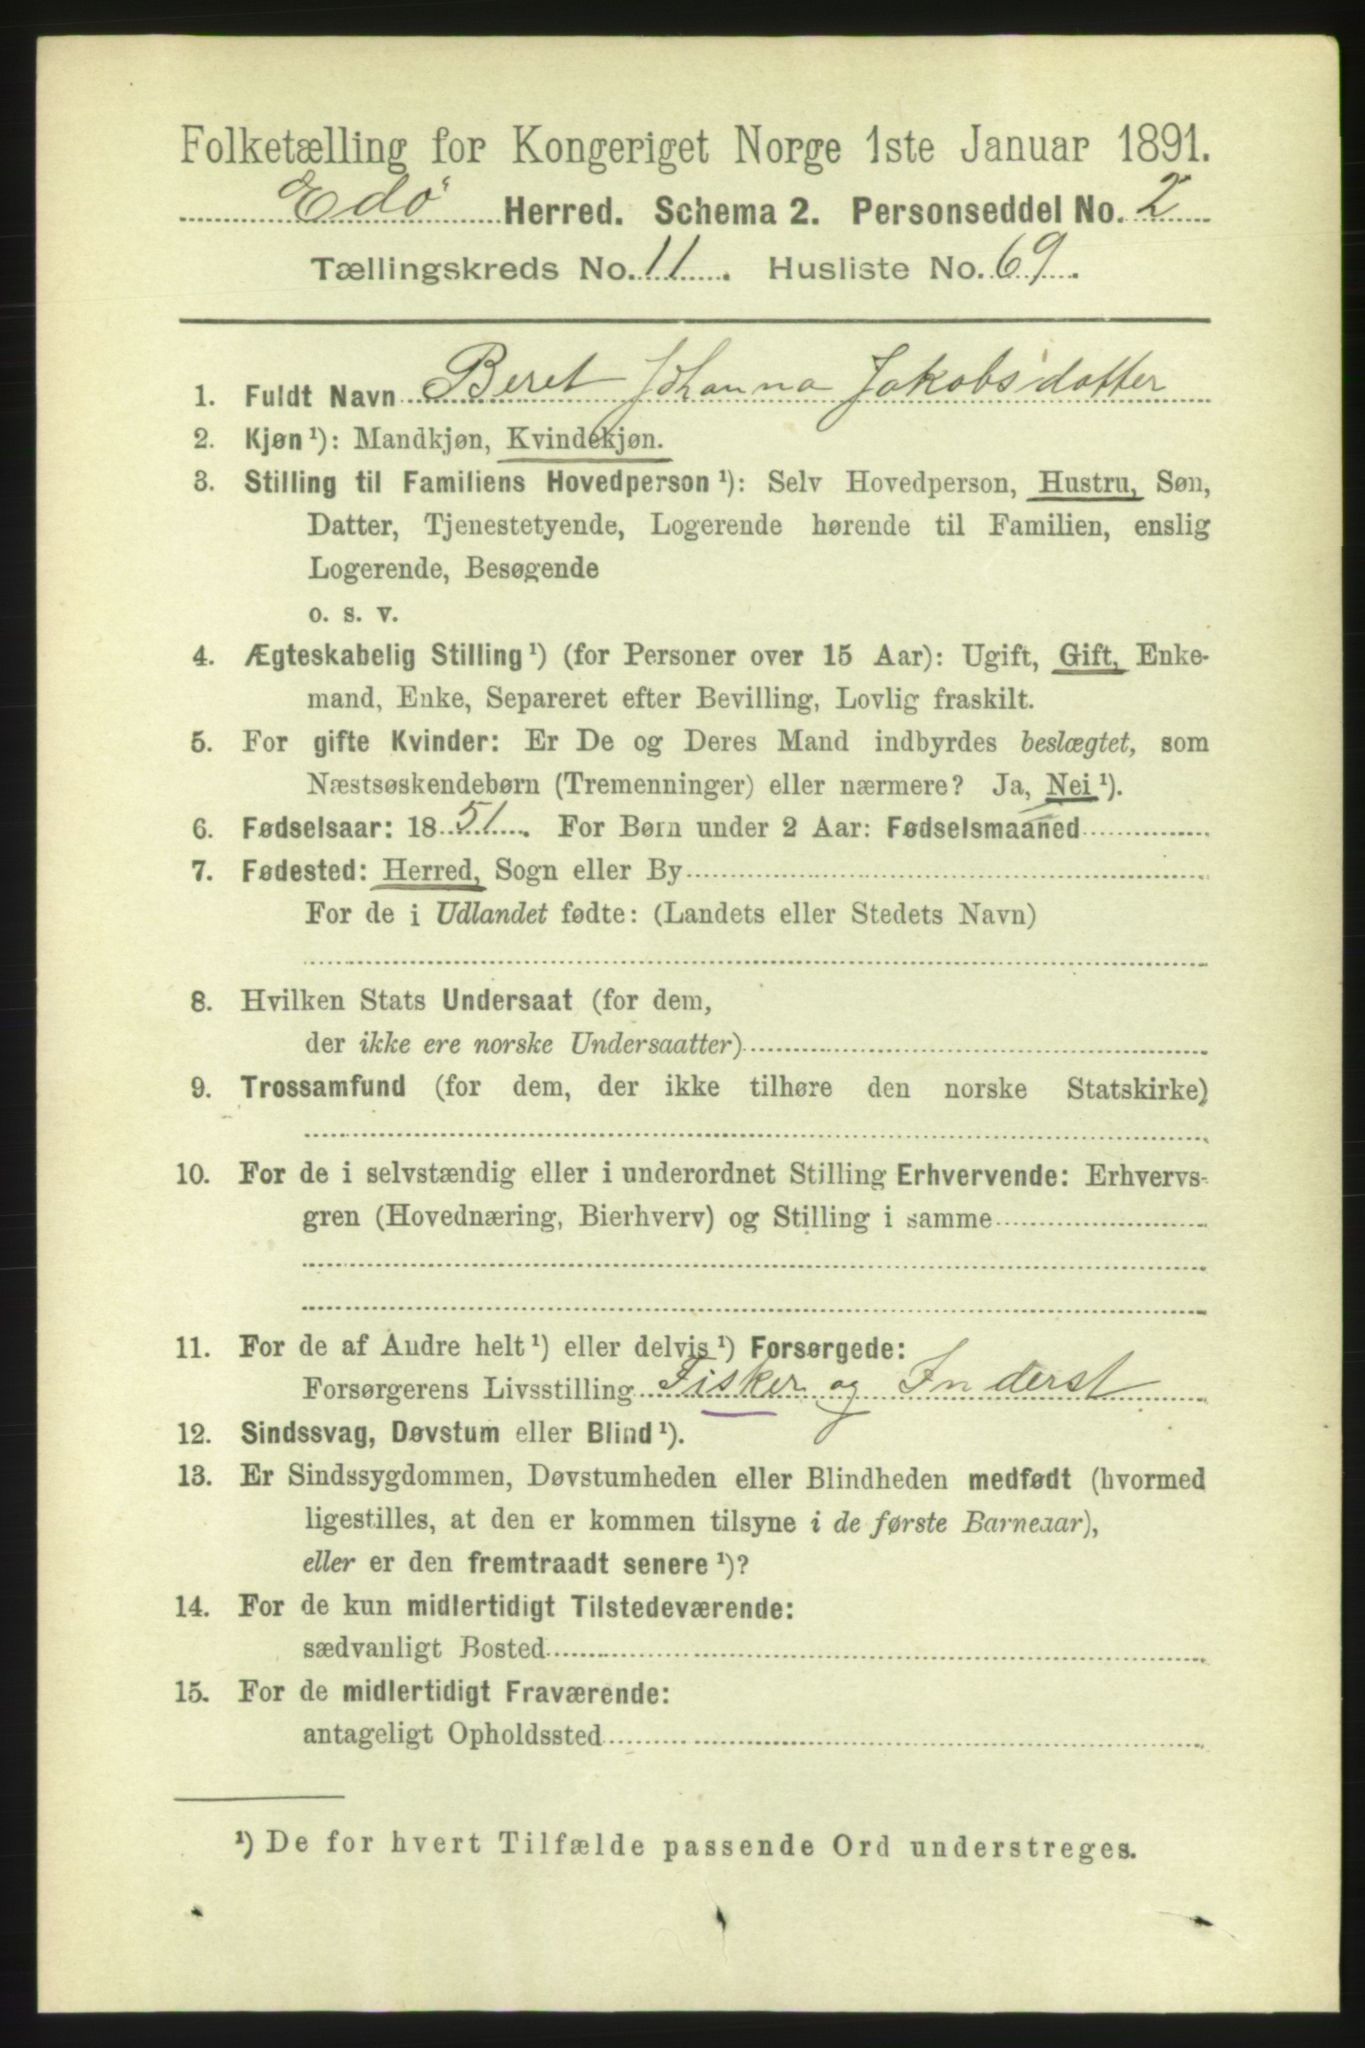 Folketælling for Kongeriget Norge 1ste Januar 1891.
Edö Herred. Schema 2. Personseddel No. 2
Tællingskreds No. 11. Husliste No. 69.
1. Fuldt Navn Beret Johanna Jakobsdatter
2. Kjøn ¹): Mandkjøn, Kvindekjøn.
3. Stilling til Familiens Hovedperson ¹): Selv Hovedperson, Hustru, Søn,
Datter, Tjenestetyende, Logerende hørende til Familien, enslig
Logerende, Besøgende
o. s. v.
4. Ægteskabelig Stilling ¹) (for Personer over 15 Aar): Ugift, Gift, Enke-
mand, Enke, Separeret efter Bevilling, Lovlig fraskilt.
5. For gifte Kvinder: Er De og Deres Mand indbyrdes beslægtet, som
Næstsøskendebørn (Tremenninger) eller nærmere? Ja, Nei ¹).
6. Fødselsaar: 1851. For Børn under 2 Aar: Fødselsmaaned
7. Fødested: Herred, Sogn eller By
For de i Udlandet fødte: (Landets eller Stedets Navn)
8. Hvilken Stats Undersaat (for dem,
der ikke ere norske Undersaatter)
9. Trossamfund (for dem, der ikke tilhøre den norske Statskirke)
10. For de i selvstændig eller i underordnet Stilling Erhvervende: Erhvervs-
gren (Hovednæring, Bierhverv) og Stilling i samme
11. For de af Andre helt ¹) eller delvis ¹) Forsørgede:
Forsørgerens Livsstilling Fisker og Inderst
12. Sindssvag, Døvstum eller Blind ¹).
13. Er Sindssygdommen, Døvstumheden eller Blindheden medfødt (hvormed
ligestilles, at den er kommen tilsyne i de første Barneaar),
eller er den fremtraadt senere ¹)?
14. For de kun midlertidigt Tilstedeværende:
sædvanligt Bosted
15. For de midlertidigt Fraværende:
antageligt Opholdssted
¹) De for hvert Tilfælde passende Ord understreges.